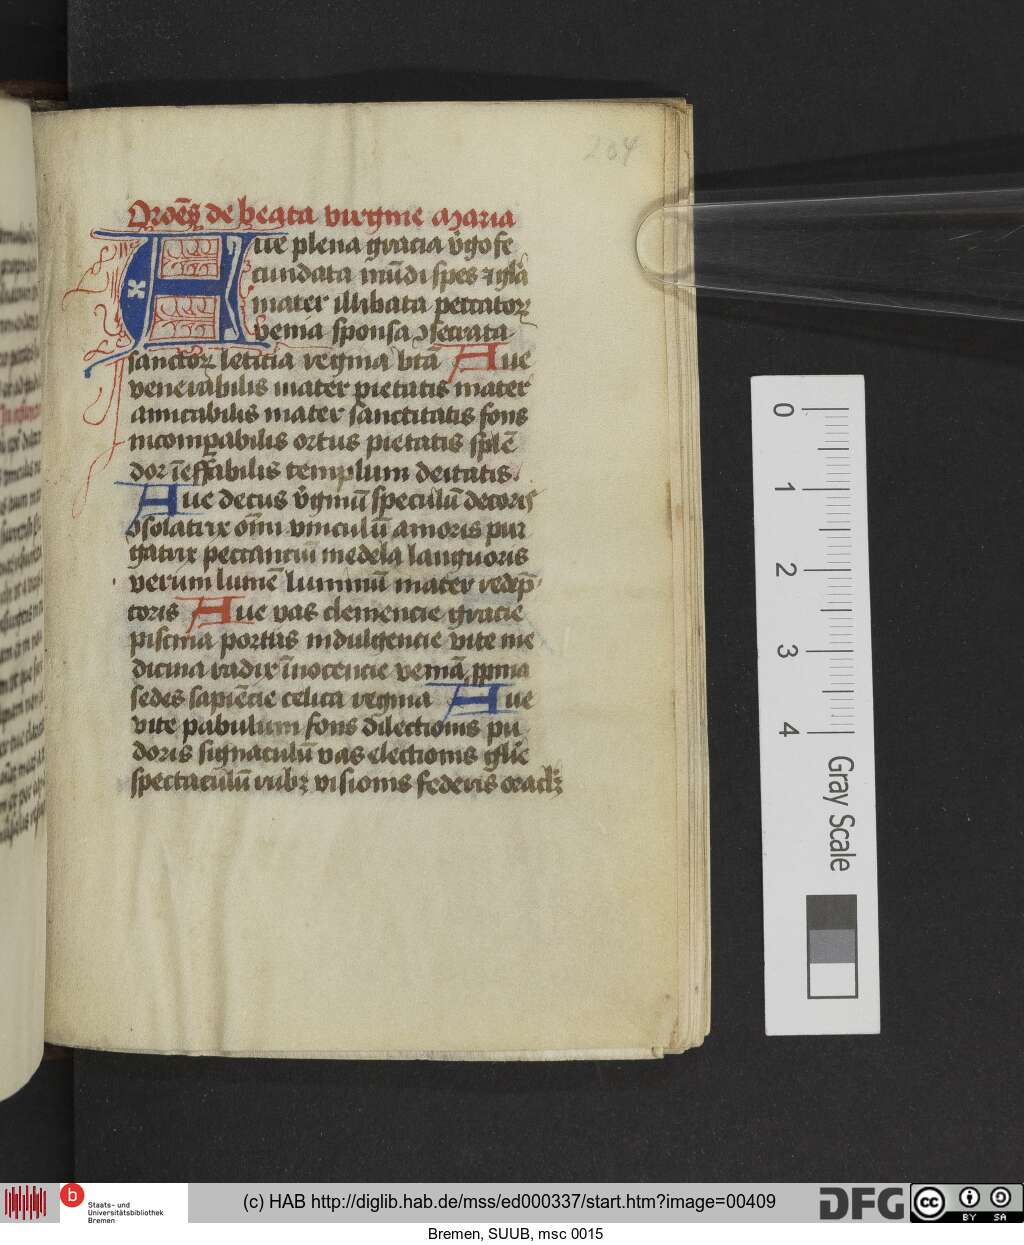 204
Oroēs de beata virgine Maria
Aue plena gracia v̄go fe
cundata mūdi spes
mater illibata peccatoꝝ
venia sponsa ↄsecrata
sanctoꝝ leticia regina btā Aue
venerabilis mater pietatis mater
amicabilis mater sanctitatis fons
incomꝑabilis ortus pietatis splē
dor īeffabilis templum deitatis
Aue decus v̄ginū speculū decoris
ↄsolatrix om̄i vinculū amoris pur
gatrix peccanciū medela languoris
verum lumē luminū mater redēp
toris Aue vas clemencie gracie
piscina portus indulgencie vite me
dicina radix īnocencie
sedes sapiēcie celica regina Aue
vite pabulum fons dilectionis pu
doris signaculū vas electionis gl̄ie
spectaculū rubꝫ visionis federis oraclꝫ
0
1
2
3
4
Gray Scale
b
Staats- und
Universitätsbibliothek
Bremen
(c) HAB http://diglib.hab.de/mss/ed000337/start.htm?image=00409
DFG
cc
BY SA
Bremen, SUUB, msc 0015